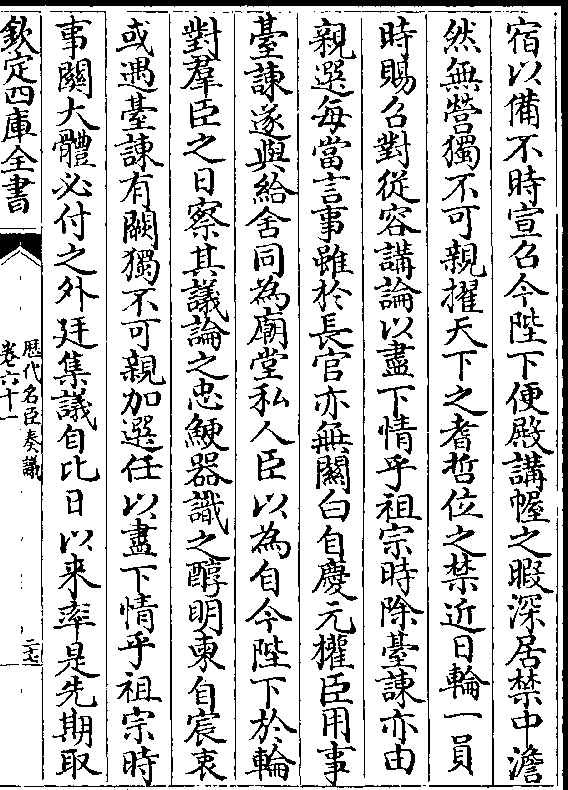 宿以備不時宣召今陛下便殿講幄之暇深居禁中澹
然無營獨不可親擢天下之耆哲位之禁近日輪一員
時賜召對從容講論以盡下情乎祖宗時除臺諫亦由
親選每當言事雖於長官亦無關白自慶元權臣用事
臺諫遂與給舍同為廟堂私人臣以為自今陛下於輪
對羣臣之日察其議論之忠鯁器識之醇明柬自宸衷
或遇臺諫有闕獨不可親加選任以盡下情乎祖宗時
事關大體必付之外廷集議自比日以来率是先期取
欽定四庫全書
歷代名臣奏議
卷六十一
二七